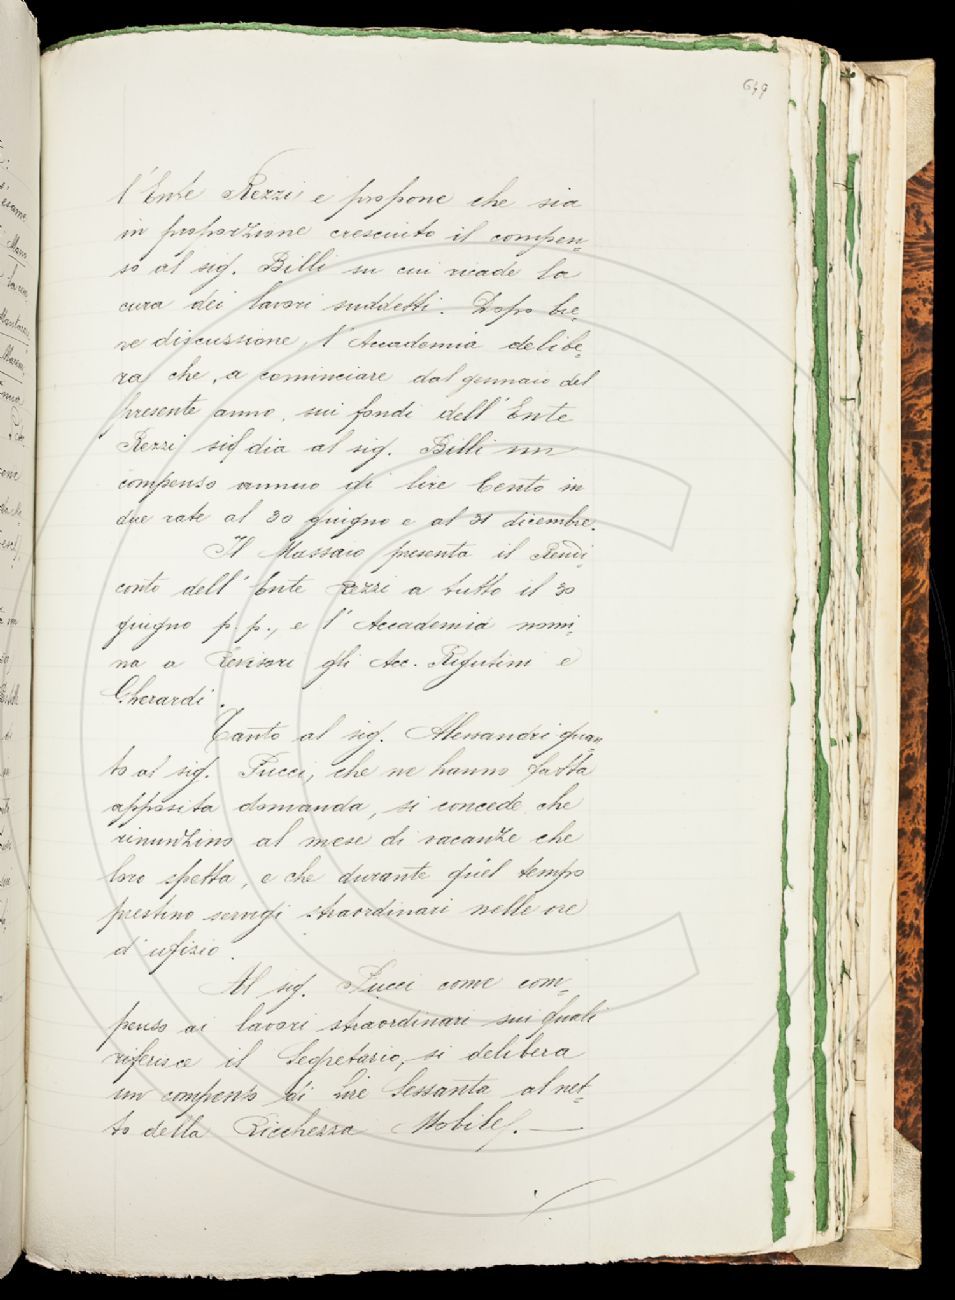 649
l'Ente Rezzi e propone che sia
in proporzione cresciuto il compen=
so al sig. Billi su cui ricade la
cura dei lavori suddetti. Dopo bre=
ve discussione, l'Accademia delibe=
ra che, a cominciare dal gennaio del
presente anno, sui fondi dell'Ente
Rezzi si dia al sig. Billi un
compenso annuo di lire Cento in
due rate al 30 giugno e al 31 dicembre.
Il Massaio presenta il Rendi=
conto dell'Ente Rezzi a tutto il 30
giugno p. p., e l'Accademia nomi=
na a Revisori gli Acc. Rigutini e
Gherardi.
Tanto al sig. Alessandri quan=
to al sig. Pucci, che ne hanno fatta
apposita domanda, si concede che
rinunzino al mese di vacanze che
loro spetta, e che durante quel tempo
prestino servigi straordinari nelle ore
d'ufizio.
Al sig. Pucci come com=
penso ai lavori straordinari sui quali
riferisce il Segretario, si delibera
un compenso di Lire Sessanta al net=
to della Ricchezza Mobile. —